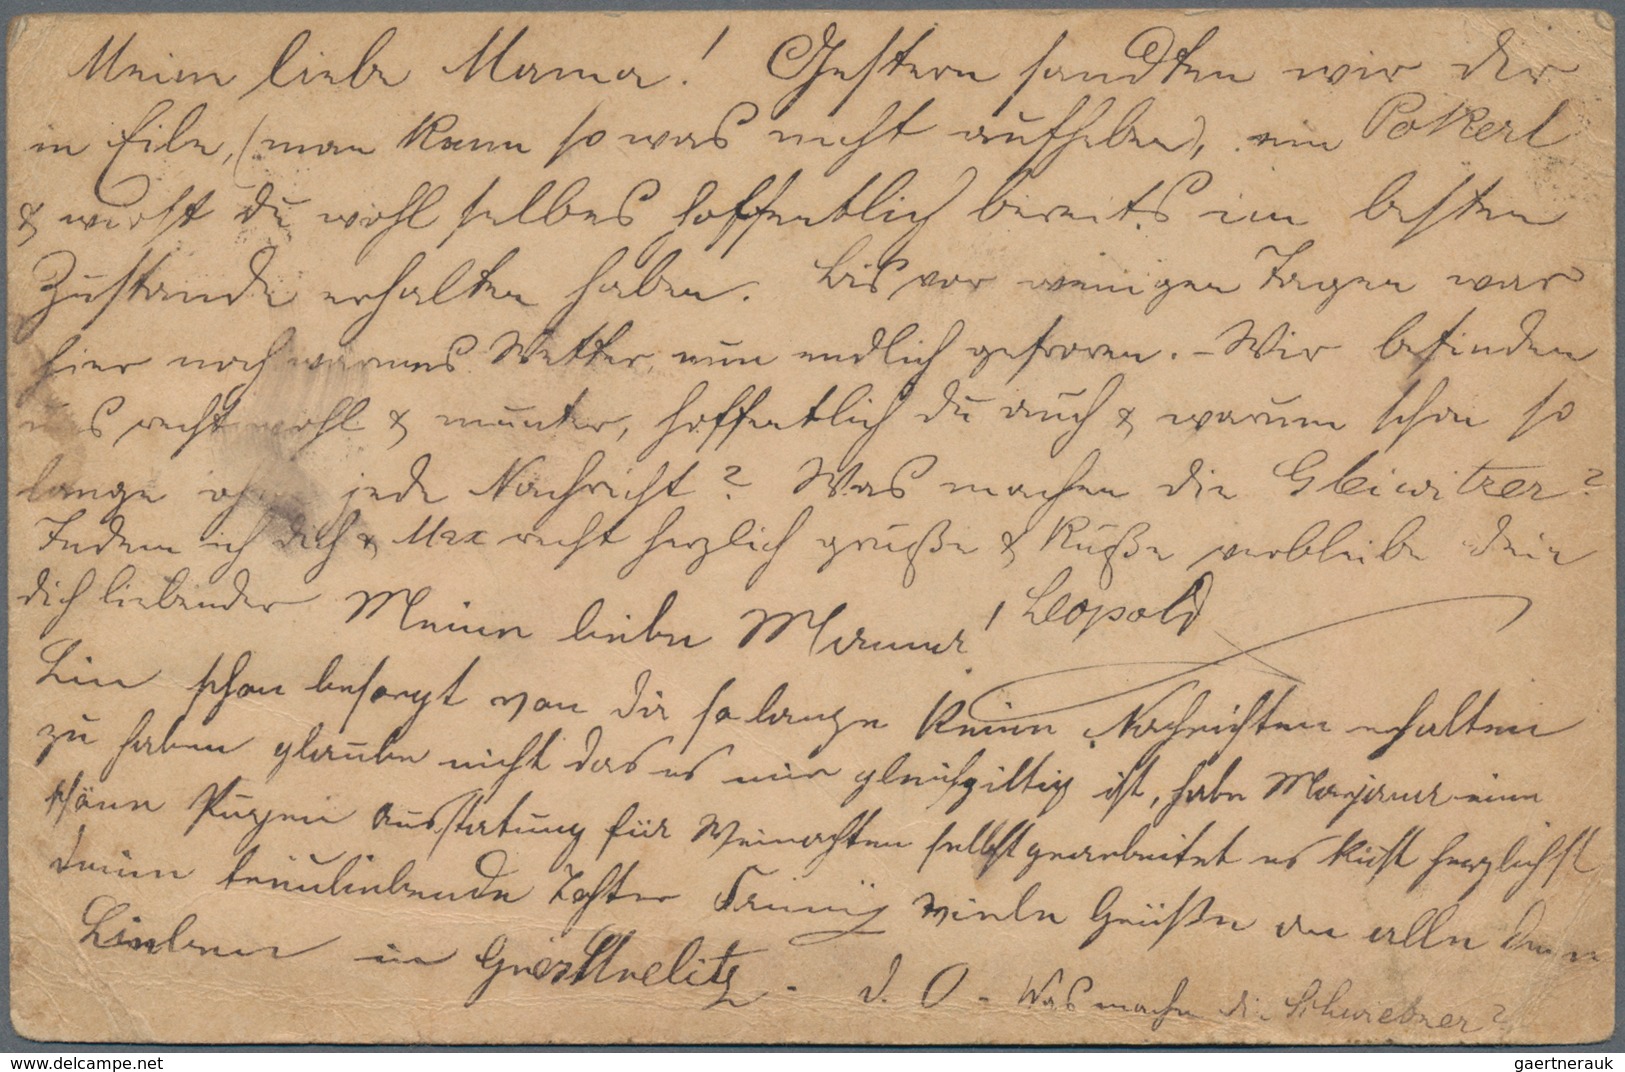 Meine liebe Mama! Gestern sandten wir dir
in Eile, (man kann so was nicht aufheben), ein Pokerl
& wirst du wohl selbes hoffentlich bereits im besten
Zustande erhalten haben. Bis vor wenigen Tagen war
hier noch warmes Wetter, nun endlich gefroren. – Wir befinden
uns recht wohl & munter, hoffentlich du auch & warum schon so
lange ohne jede Nachricht? Was machen die Gleiwitzer?
Indem ich dich & Max recht herzlich grüße & küße verbleibe dein
dich liebender Leopold
Meine liebe Mama!
Bin schon besorgt von dir so lange keine Nachrichten erhalten
zu haben glaube nicht das es mir gleichgiltig ist, habe eine
schöne Ausstatung für Weinachten selbst gearbeitet es küst herzlichst
deine treuliebende Tochter viele Grüße an alle
Lieben in
d. O – Was machen die Schwiebner?
gaertnerauk
www.delcampe.net